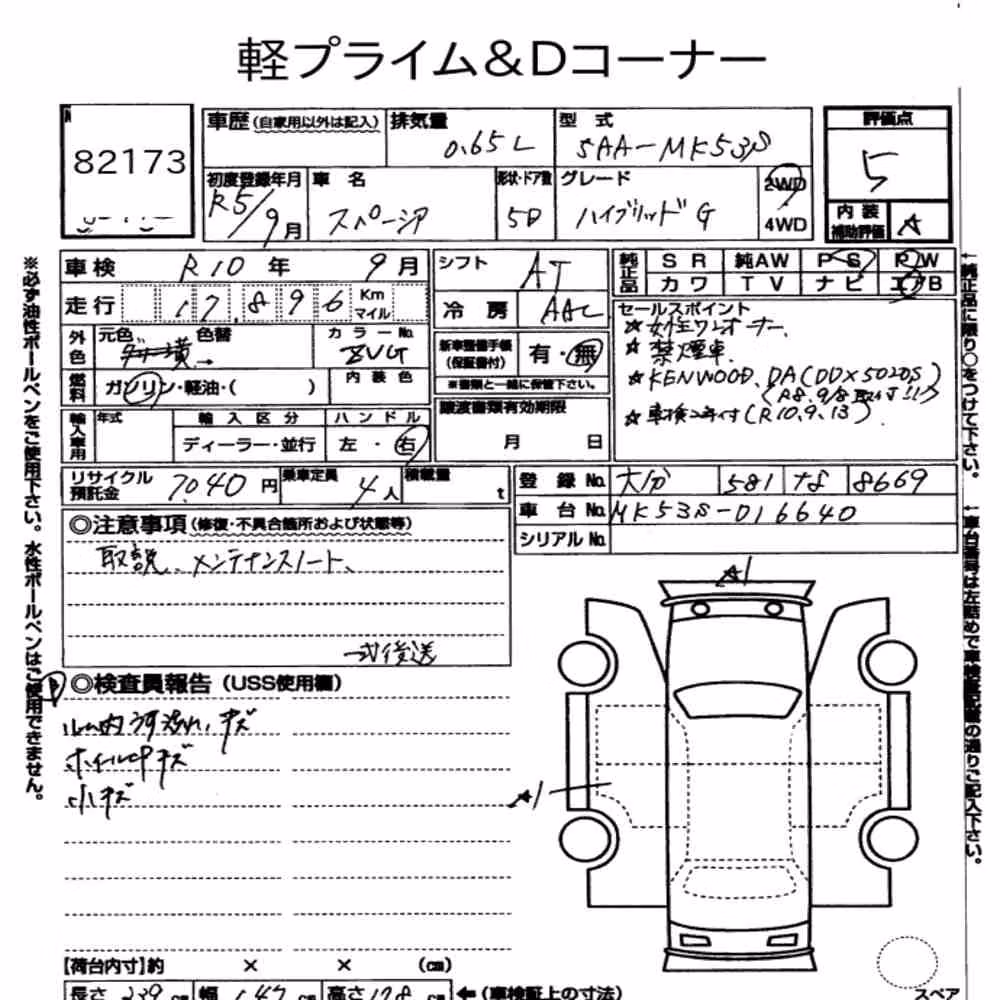 軽プライム&Dコーナー
82173
車歴 (自家用以外は記入)
排気量 0.65L
型式 5AA-MK53S
評価点 5
初度登録年月 R5/9月
車名 スペーシア
形状・ドア数 5D
グレード ハイブリッドG
2WD
4WD
内装補助評価 A
車検 R10年 9月
シフト AT
純正品
SR 純AW PS PW
カワ TV ナビ エアB
走行 17,896 Km マイル
冷房 AAC
セールスポイント
☆女性ワンオーナー、
☆禁煙車、
☆KENWOOD、DA(DDX5020S)
(R8.9/8取付!!)
☆車検2年付(R10.9.13)
外色 元色 色替 → カラーNo. ZVG
新車整備手帳 (保証書付) 有・無
※書類と一緒に保管下さい。
燃料 ガソリン・軽油・( )
内装色
譲渡書類有効期限
月 日
輸入車用 年式 輸入区分 ハンドル
ディーラー・並行 左・右
リサイクル預託金 7,040円
乗車定員 4人
積載量 t
登録No. 大分 581 な 8669
車台No. MK53S-016640
シリアルNo.
◎注意事項 (修復・不具合箇所および状態等)
取説、メンテナンスノート、
一式後送
◎検査員報告 (USS使用欄)
ルーム内うす汚れ、キズ
ホイール中キズ
小キズ
A1
A1
【荷台内寸】約 × × (cm)
長さ 339 cm 幅 147 cm 高さ 178 cm ←(車検証上の寸法)
スペア
※必ず油性ボールペンをご使用下さい。水性ボールペンはご使用できません。
←純正品に限り○をつけて下さい。
←車台番号は左詰めで車検証記載の通りご記入下さい。